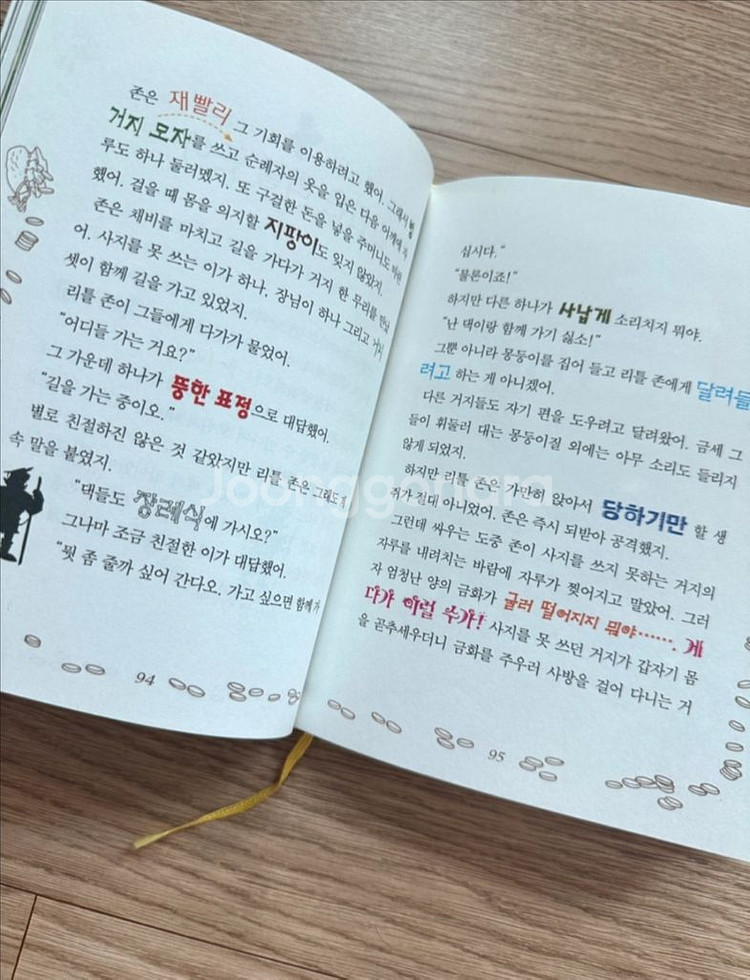 존은 재빨리 그 기회를 이용하려고 했어. 그래서
거지 모자를 쓰고 순례자의 옷을 입은 다음 어깨에
루도 하나 둘러멨지. 또 구걸한 돈을 넣을 주머니도
했어. 걸을 때 몸을 의지할 지팡이도 잊지 않았지.
존은 채비를 마치고 길을 가다가 거지 한 무리를 만났
어. 사지를 못 쓰는 이가 하나, 장님이 하나 그리고
셋이 함께 길을 가고 있었지.
리틀 존이 그들에게 다가가 물었어.
"어디들 가는 거요?"
그 가운데 하나가 뚱한 표정으로 대답했어.
"길을 가는 중이오."
별로 친절하진 않은 것 같았지만 리틀 존은 그래도
속 말을 붙였지.
"댁들도 장례식에 가시오?"
그나마 조금 친절한 이가 대답했어.
"뭣 좀 줄까 싶어 간다오. 가고 싶으면 함께 가
94
십시다."
"물론이죠!"
하지만 다른 하나가 사납게 소리치지 뭐야.
"난 댁이랑 함께 가기 싫소!"
그뿐 아니라 몽둥이를 집어 들고 리틀 존에게 달려들
려고 하는 게 아니겠어.
다른 거지들도 자기 편을 도우려고 달려왔어. 금세 그
들이 휘둘러 대는 몽둥이질 외에는 아무 소리도 들리지
않게 되었지.
하지만 리틀 존은 가만히 앉아서 당하기만 할 생
각가 절대 아니었어. 존은 즉시 되받아 공격했지.
그런데 싸우는 도중 존이 사지를 쓰지 못하는 거지의
자루를 내려치는 바람에 자루가 찢어지고 말았어. 그러
자 엄청난 양의 금화가 굴러 떨어지지 뭐야……. 게
다가 이럴 수가! 사지를 못 쓰던 거지가 갑자기 몸
을 곧추세우더니 금화를 주우러 사방을 걸어 다니는 거
95
Joonggonara